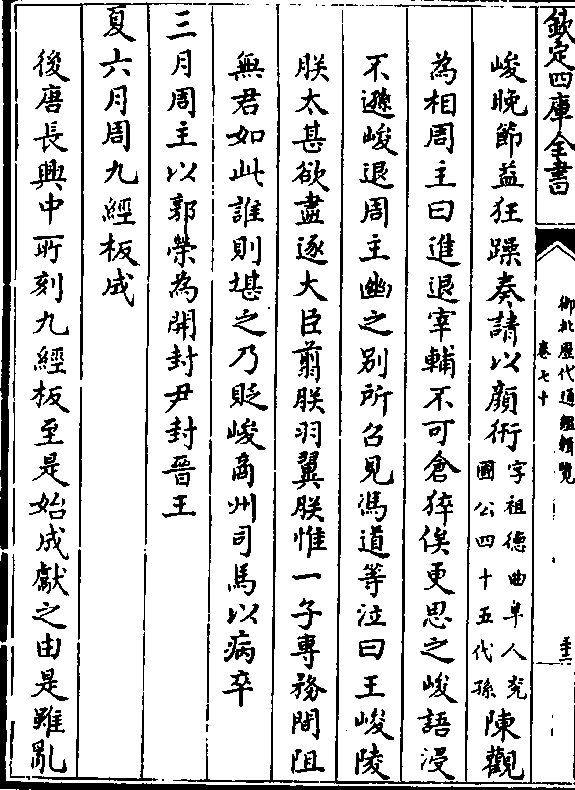 欽定四庫全書
御批歷代通鑑輯覽
卷七十
峻晚節益狂躁奏請以顔衎字祖德曲阜人兖國公四十五代孫陳觀
為相周主曰進退宰輔不可倉猝俟更思之峻語浸
不遜峻退周主幽之别所召見馮道等泣曰王峻陵
朕太甚欲盡逐大臣翦朕羽翼朕惟一子專務間阻
無君如此誰則堪之乃貶峻商州司馬以病卒
三月周主以郭榮為開封尹封晉王
夏六月周九經板成
後唐長興中所刻九經板至是始成獻之由是雖亂